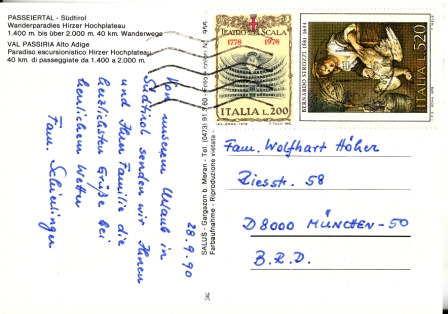 PASSEIERTAL - Südtirol
Wanderparadies Hirzer Hochplateau
1.400 m. bis über 2.000 m. 40 km. Wanderwege
VAL PASSIRIA Alto Adige
Paradiso escursionistico Hirzer Hochplateau
40 km. di passeggiate da 1.400 a 2.000 m.
28.9.90
Vom unserem Urlaub in
Südtirol senden wir Ihnen
und Ihrer Familie die
herzlichsten Grüße bei
herrlichem Wetter
Fam.
SALUS - Gargazon b. Meran - Tel. (0473)
Farbaufnahme - Riproduzione vietata -
TEATRO ALLA SCALA
1778 1978
ITALIA L.200
BERNARDO STROZZI 1581-1644
ITALIA L.520
Fam. Wolfhart Höher
Riesstr. 58
D8000 MÜNCHEN-50
B.R.D.